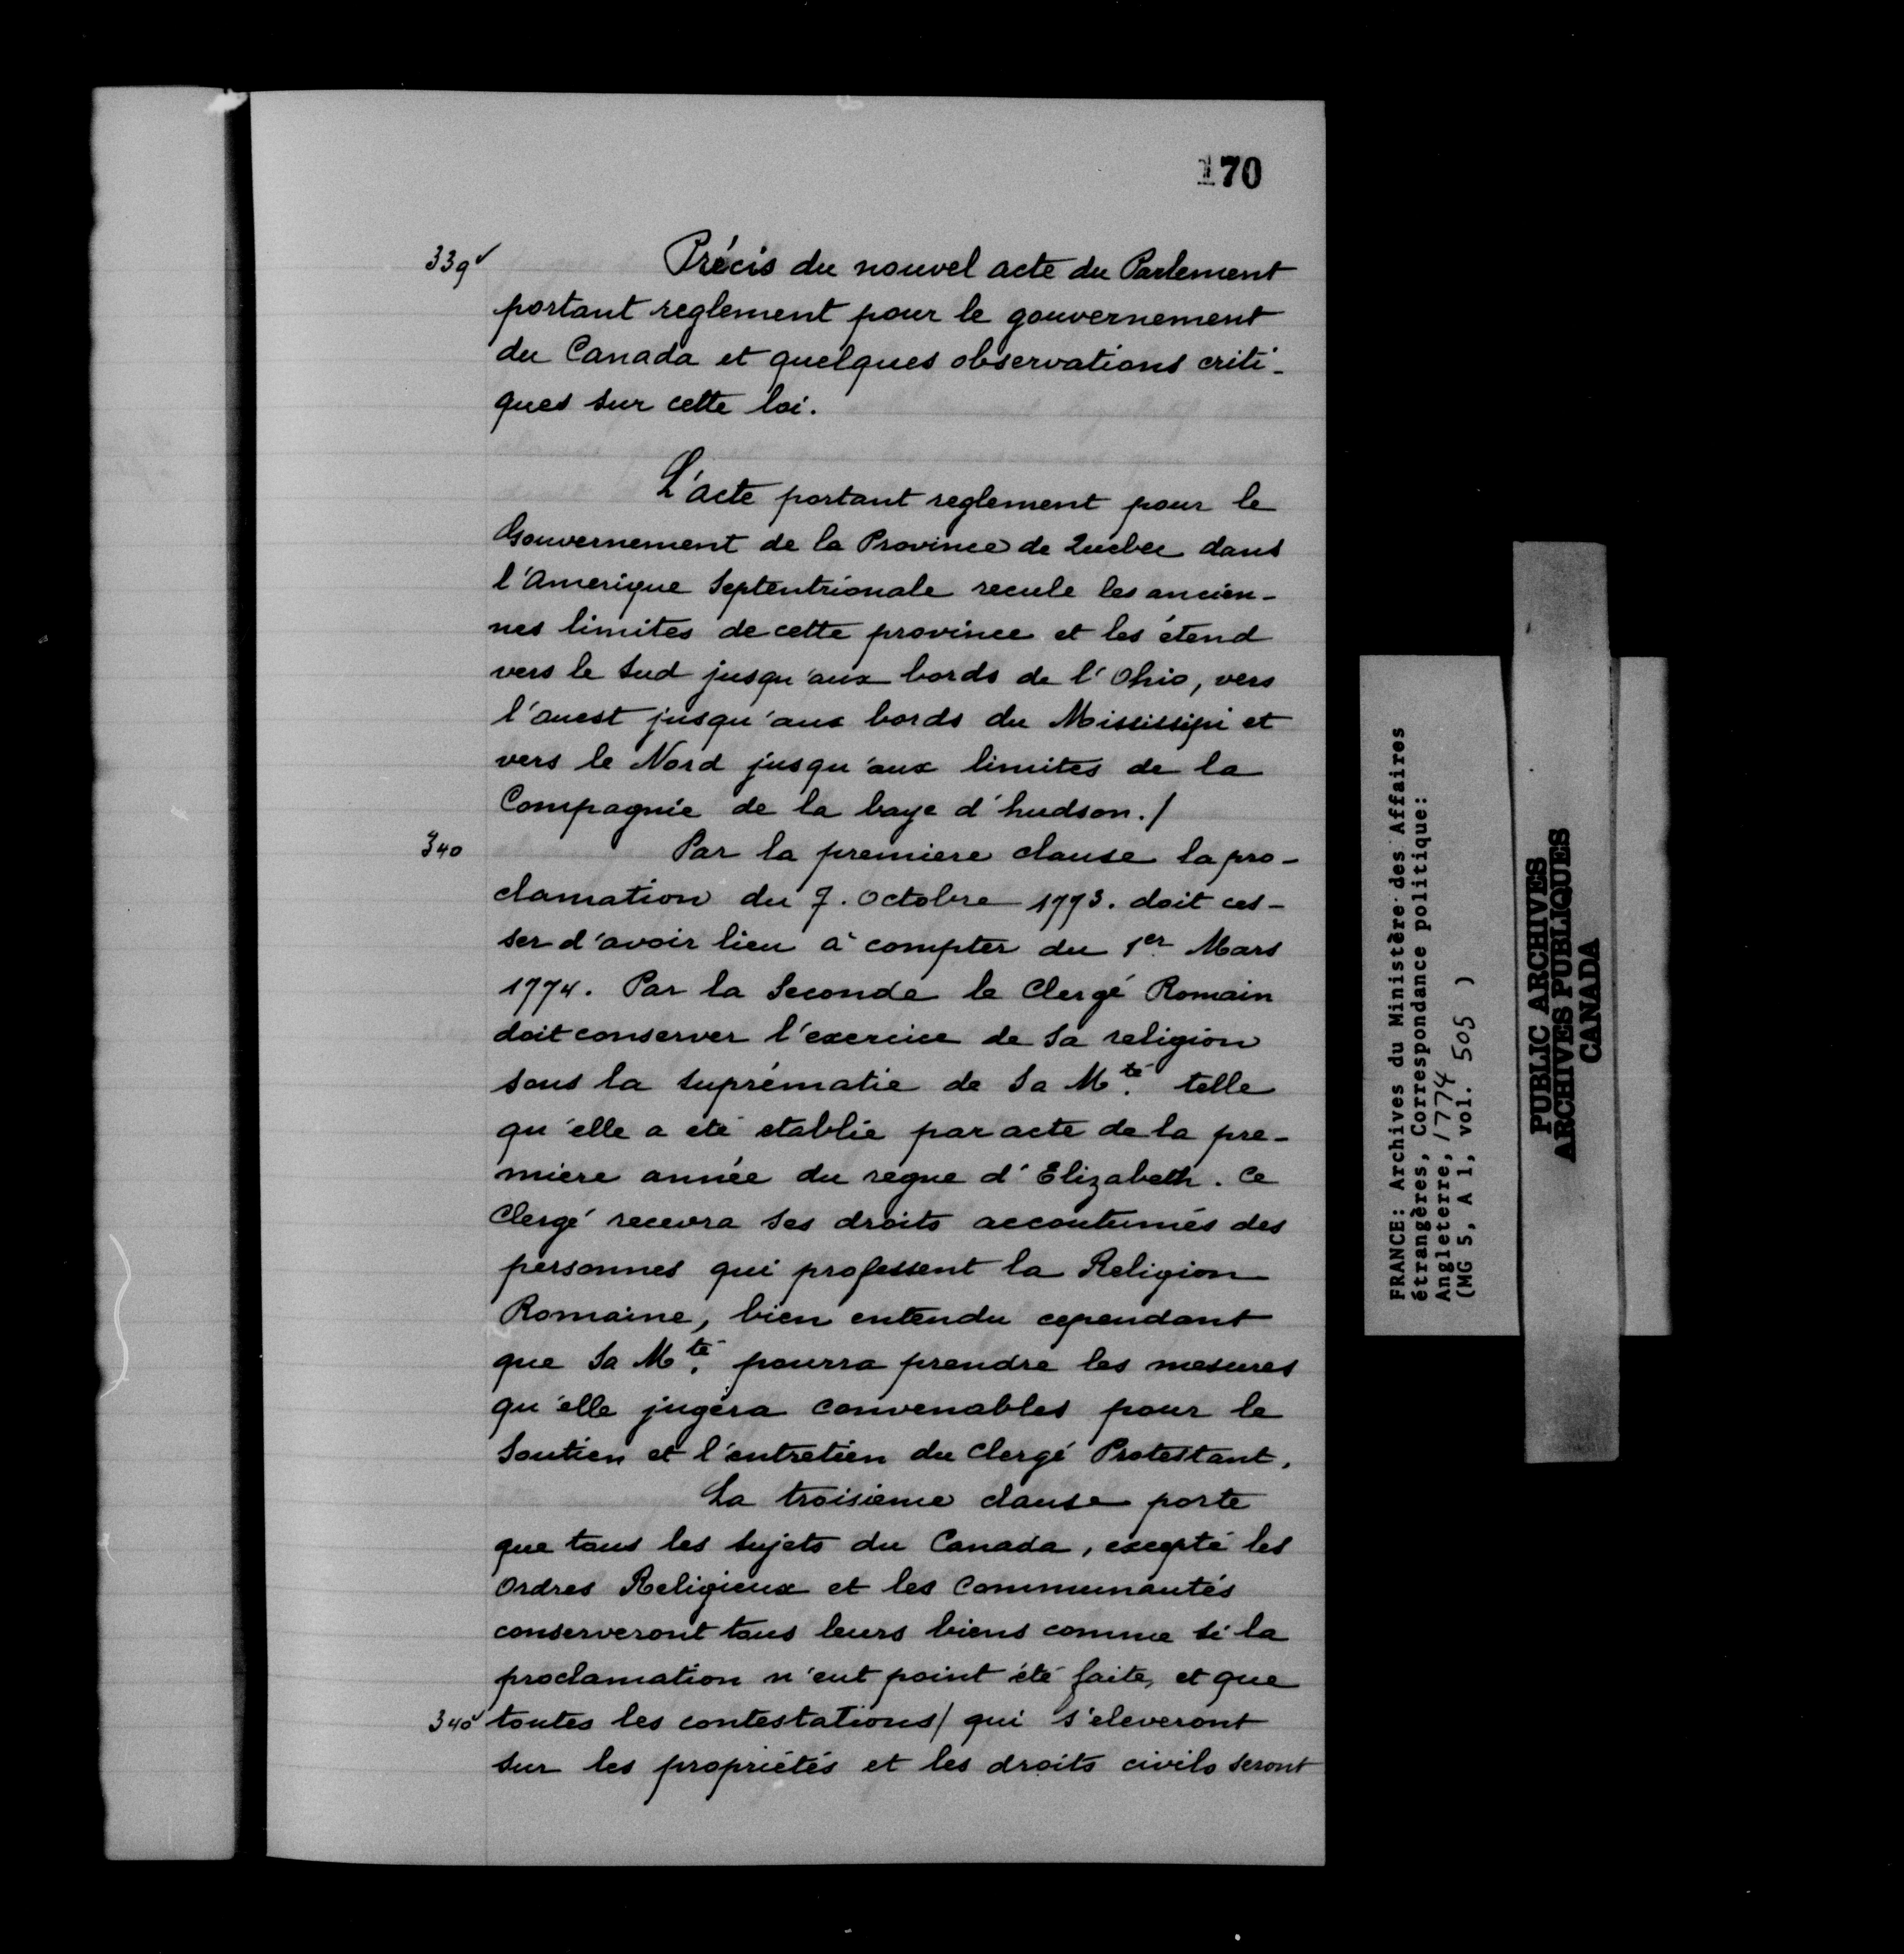 170
339v Précis du nouvel acte du Parlement
portant reglement pour le gouvernement
du Canada et quelques observations criti-
ques sur cette loi.
L'acte portant reglement pour le
Gouvernement de la Province de Quebec dans
l'Amerique Septentrionale recule les ancien-
nes limites de cette province et les étend
vers le Sud jusqu'aux bords de l'Ohio, vers
l'ouest jusqu'aux bords du Mississipi et
vers le Nord jusqu'aux limites de la
Compagnie de la baye d'hudson./
340 Par la premiere clause la pro-
clamation du 7. Octobre 1773. doit ces-
ser d'avoir lieu à compter du 1er. Mars
1774. Par la Seconde le Clergé Romain
doit conserver l'exercice de Sa religion
sous la suprématie de Sa Mté. telle
qu'elle a été etablie par acte de la pre-
miere année du regne d'Elizabeth. Ce
Clergé recevra ses droits accoutumés des
personnes qui professent la Religion
Romaine, bien entendu cependant
que Sa Mté. pourra prendre les mesures
qu'elle jugera convenables pour le
Soutien et l'entretien du Clergé Protestant.
La troisieme clause porte
que tous les sujets du Canada, excepté les
Ordres Religieux et les Communautés
conserveront tous leurs biens comme si la
proclamation n'eut point été faite, et que
340v toutes les contestations/ qui s'eleveront
sur les propriétés et les droits civils seront
FRANCE: Archives du Ministère des Affaires
étrangères, Correspondance politique:
Angleterre, 1774
(MG 5, A 1, vol. 505 )
PUBLIC ARCHIVES
ARCHIVES PUBLIQUES
CANADA